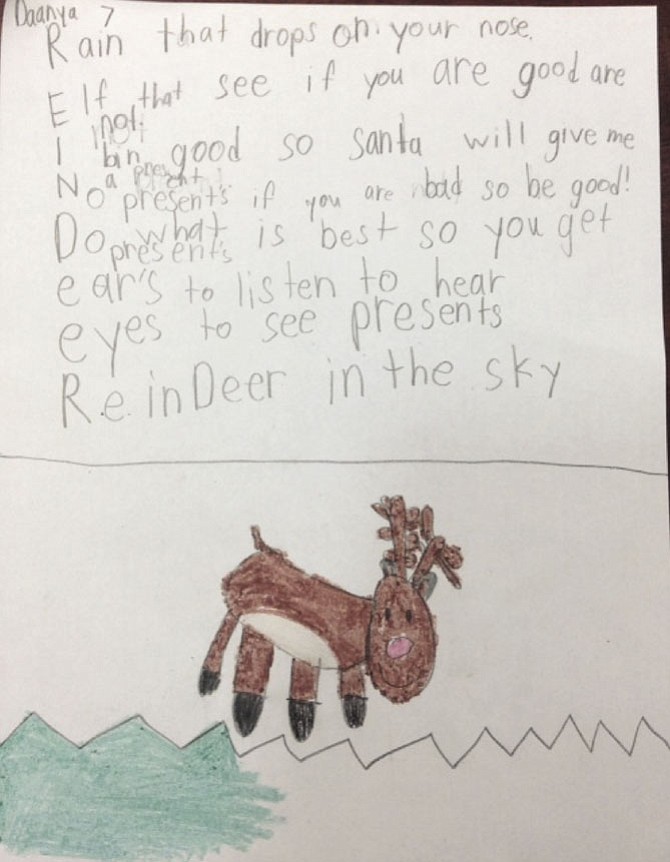 Daanya 7
Rain that drops on your nose.
Elf that see if you are good are
not.
I bin good so santa will give me
a present
No presents if you are bad so be good!
Do what is best so you get
presents
ear's to listen to hear
eyes to see presents
ReinDeer in the sky